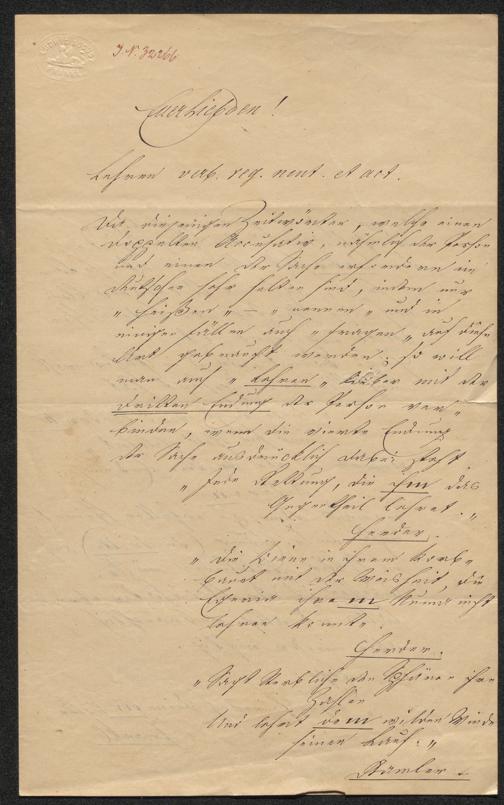 J. N. 32266
Euer Liebden!
Lehren verb. reg. neut. et act.
Da diejenigen Zeitwörter, welche einen
doppelten Accusativ, nämlich der Person
und einen der Sache erfordern im
Deutschen sehr selten sind, indem nur
„heißen" – „nennen" und in
einigen Fällen auch „fragen" auf diese
Art gebraucht werden; so will
man auch „lehren" lieber mit der
dritten Endung der Person ver-
binden, wenn die vierte Endung
der Sache ausdrücklich dabei steht.
„Jede Stellung, die ihm das
Gegentheil lehret."
Herder.
„Die Biene in ihrem Korb-
baut mit der Weisheit, die
Egeria ihrem Numa nicht
lehren konnte.
Herder.
„Sagt Sterbliche den Sphären ihre
Zahlen
Und lehret dem wilden Winde
seinen Lauf."
Ramler